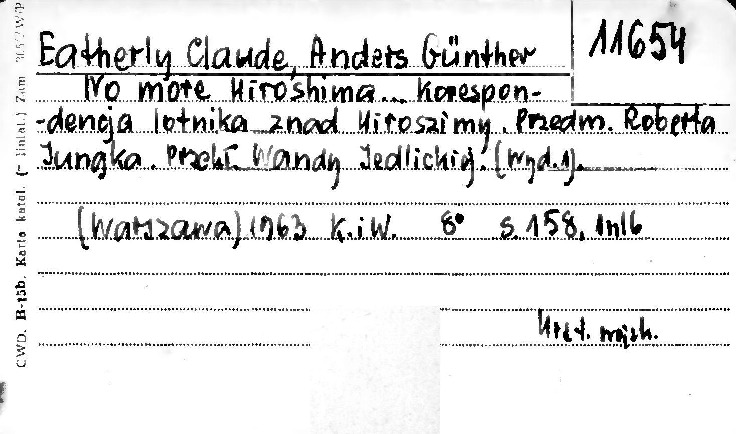 11654
Eatherly Claude, Anders Günther
No more Hiroshima... Korespon-
-dencja lotnika znad Hiroszimy. Przedm. Roberta
Jungka. Przekł. Wandy Jedlickiej. (Wyd.1).
(Warszawa) 1963 K.iW. 8° s.158, 1nlb
wojsk.
CWD. B-15b. Karta katal. (* liniat.) Zam.